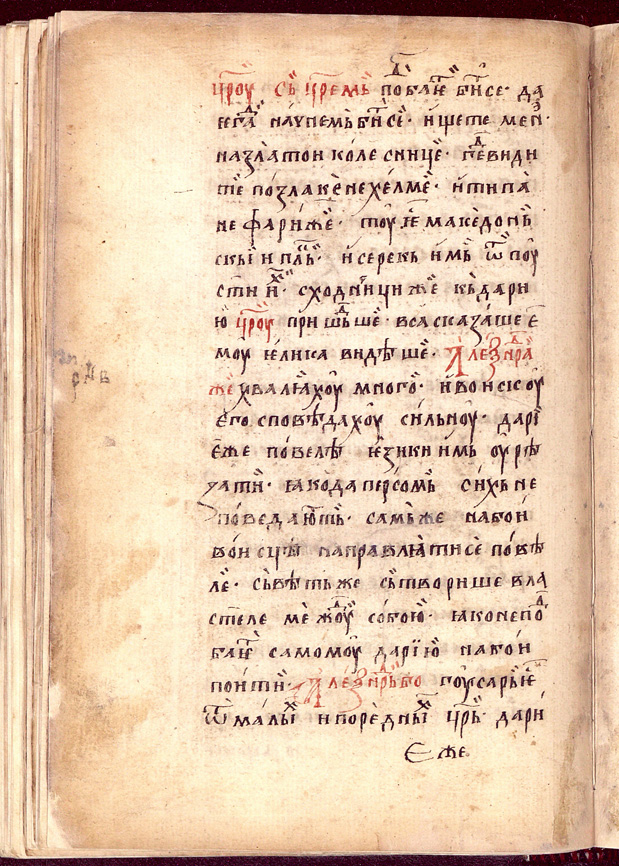 цр҃оу съ цр҃емь побаⷣіе҆ битисе · да
не глаⷣ на упемь битисе · ищете мене
на златои колеснице · где види
те позлакѥне хелме · и типа
не фариже · тоу је македонь
скыи и пль · и серекь имь ѿпоу
сти ихь · сходници же кь дари
ю цр҃оу пришⷣьше · вса сказаше е
моу ѥлика видѣше · Алеѯнⷣра
же хвалꙗхоу много · и воискоу
его сповѣдахоу сильноу · дарї
еже повелѣ ѥзики имь оурѣ
зати · ꙗко да персомь сихь не
поведають · самь же на бои
воисцѣ направлꙗтисе повѣ
ле · съвѣть же сътворише вла
стеле межⷣоу собою · ꙗко не поⷣ
баіеть самомоу дарїю на бои
поити · Алеѯнⷣрь бо гоусарь іе
ѿ малыⷯ и порѣдныⷯ цр҃ь · дари
Еже